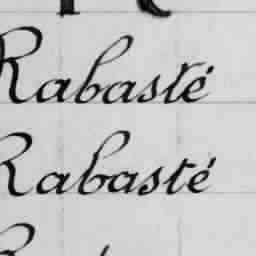 Rabasté
Rabasté